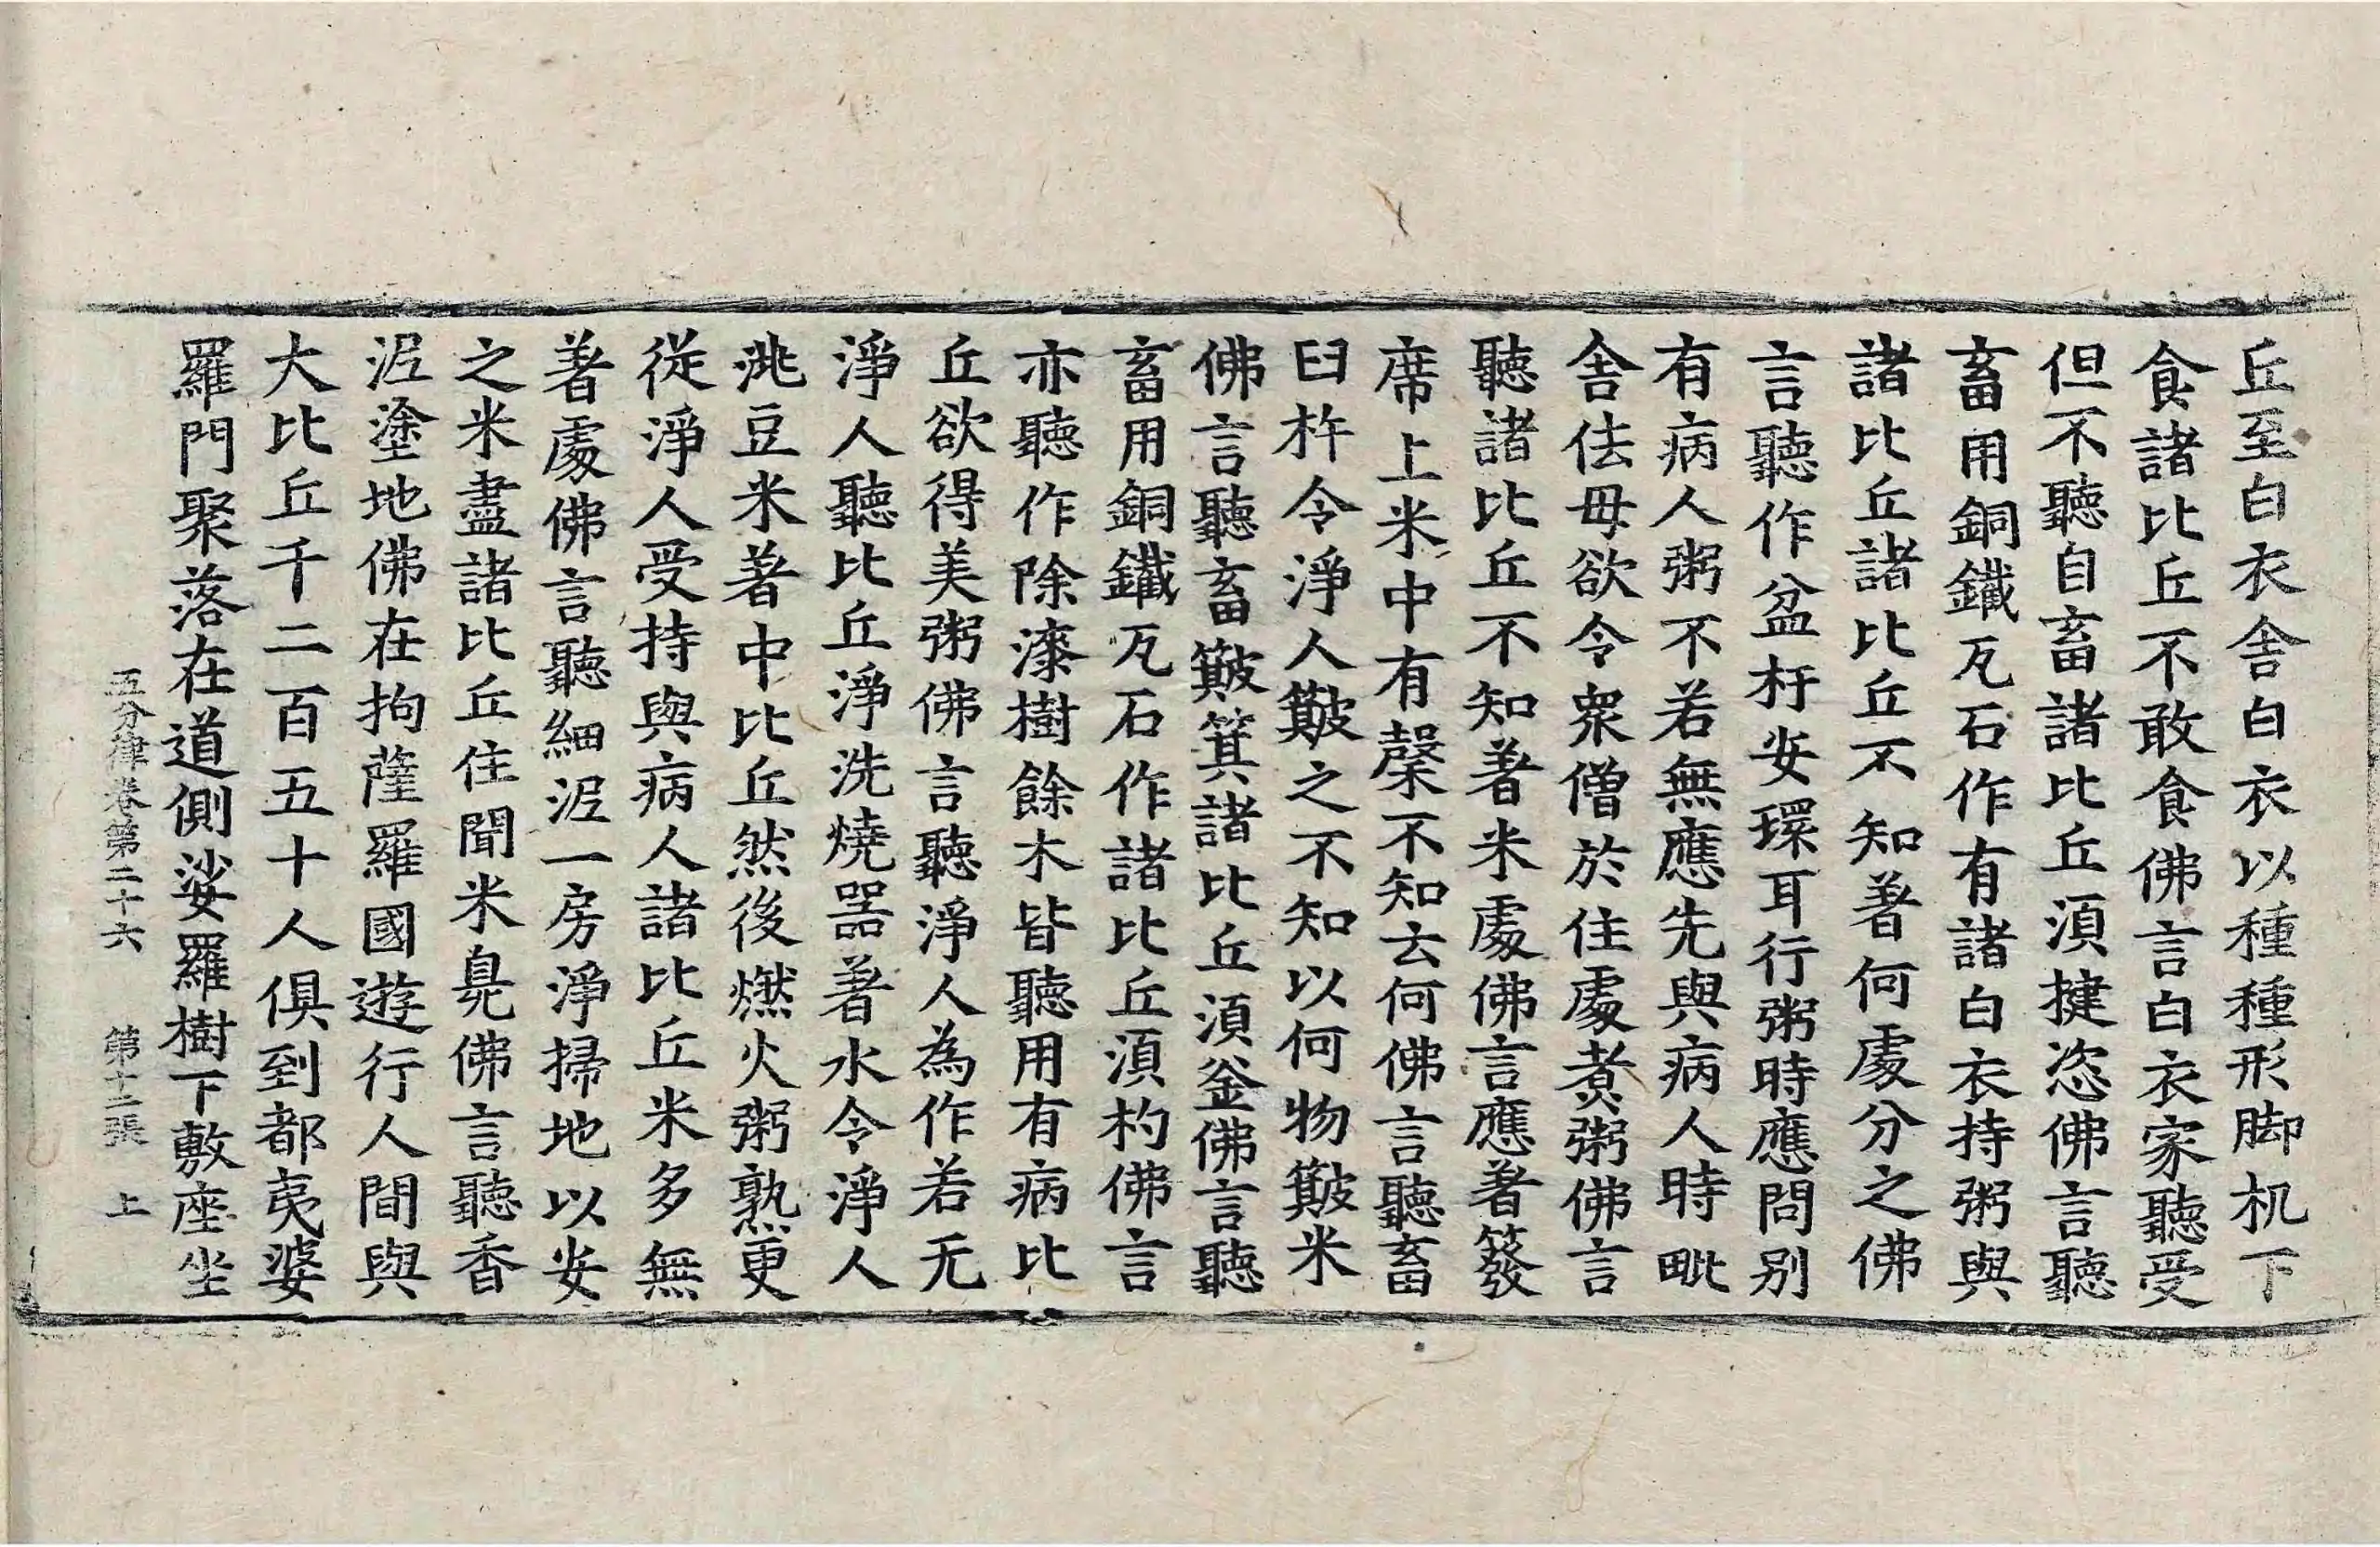 丘至白衣舍白衣以種種形脚机下
食諸比丘不敢食佛言白衣家聽受
但不聽自畜諸比丘湏揵恣佛言聽
畜用銅鐵瓦石作有諸白衣持粥與
諸比丘諸比丘不知著何處分之佛
言聽作盆杅安環耳行粥時應問别
有病人粥不若無應先與病人時毗
舍佉母欲令衆僧於住處煮粥佛言
聽諸比丘不知著米處佛言應著簽
席上米中有䅽不知去何佛言聽畜
臼杵令淨人簸之不知以何物簸米
佛言聽畜簸箕諸比丘湏釜佛言聽
畜用銅鐵瓦石作諸比丘湏杓佛言
亦聽作除漆樹餘木皆聽用有病比
丘欲得美粥佛言聽淨人為作若无
淨人聽比丘淨洗燒器著水令淨人
洮豆米著中比丘然後燃火粥熟更
從淨人受持與病人諸比丘米多無
著處佛言聽細泥一房淨掃地以安
之米盡諸比丘住聞米臭佛言聽香
泥塗地佛在拘薩羅國遊行人間與
大比丘千二百五十人俱到都夷婆
羅門聚落在道側娑羅樹下敷座坐
五分律卷第二十六 第十二張 上